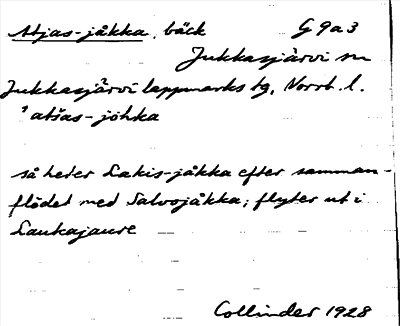 Atjas-jåkka, bäck G 9 a 3
Jukkasjärvi sn
Jukkasjärvi lappmarks tg, Norrb. l.
'atšas-johka
så heter Lakis-jåkka efter samman-
flödet med Salvojåkka; flyter ut i
Laukajaure
Collinder 1928